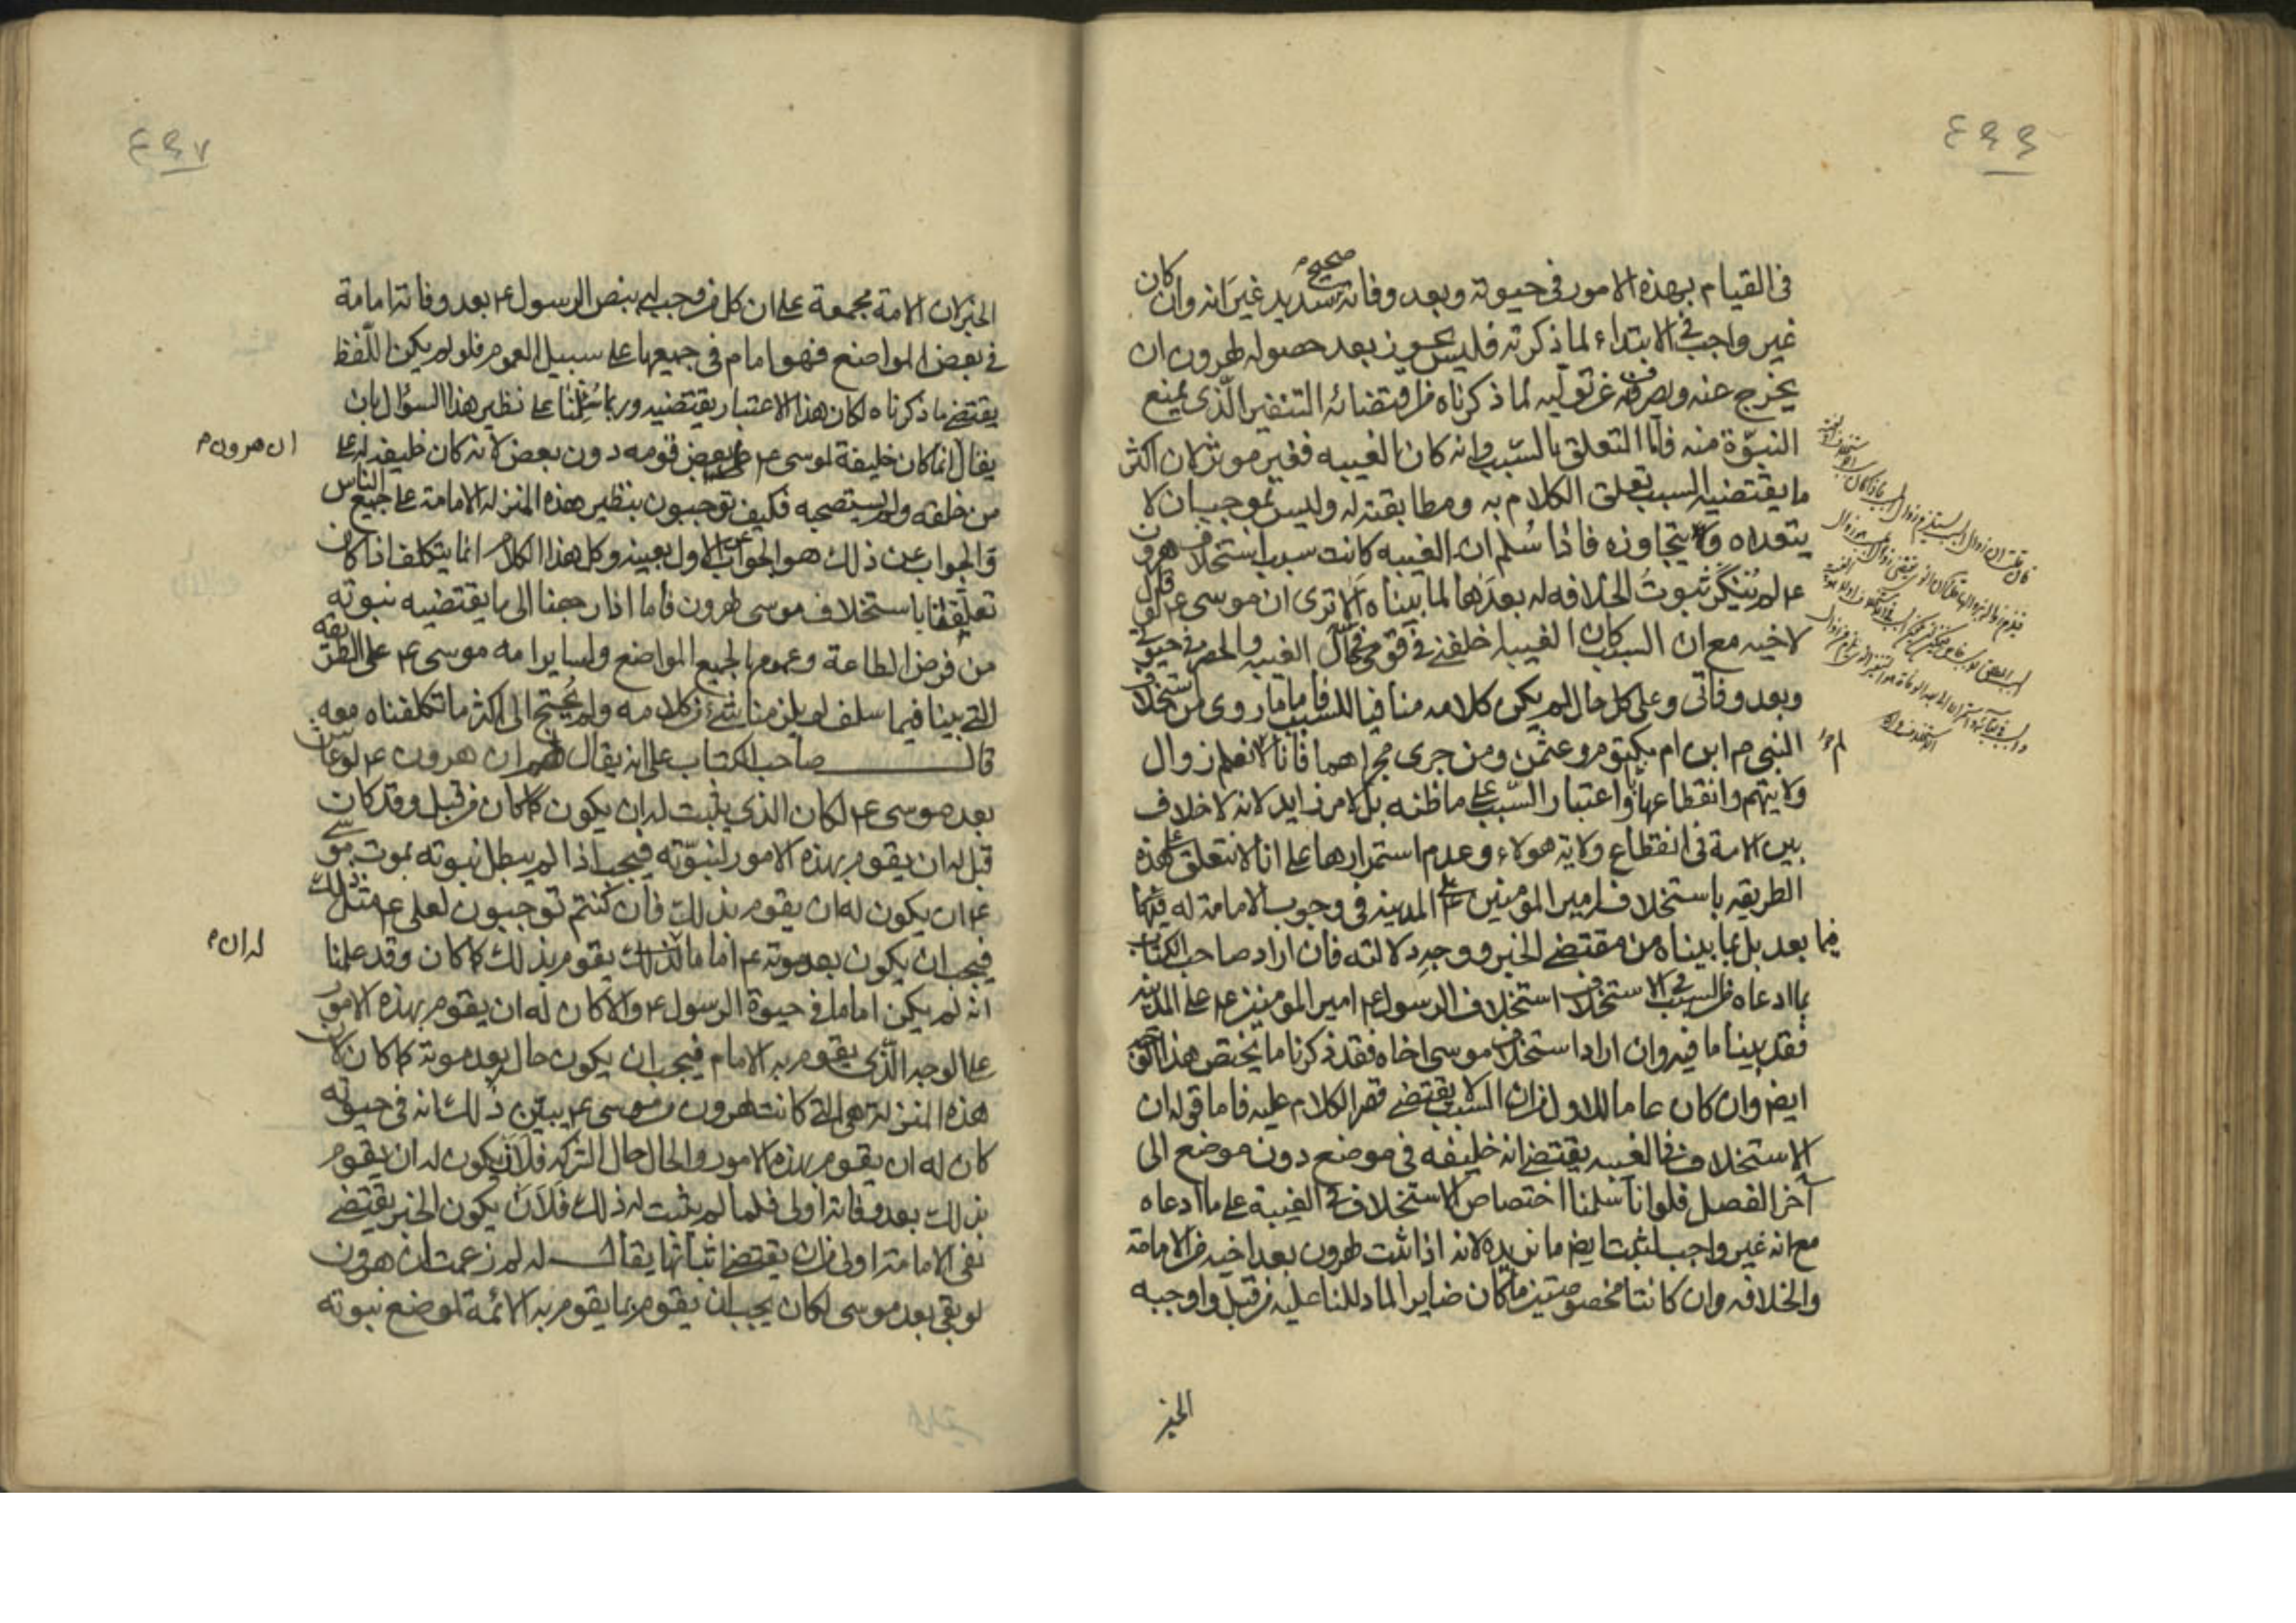 ٤٩٦
في القيام بهذه الامور في حيوته وبعد وفاته صحيح سديد غير انه وان كان
غير واجب في الابتداء لما ذكرته فليس يجوز بعد حصوله لهرون ان
يخرج عنه ويصرف عن توليه لما ذكرناه من اقتضائه التنفير الذي يمنع
النبوّة منه فامّا التعلق بالسّبب وانه كان الغيبه فغير موثر لان اكثر
ما يقتضيه السبب تعلق الكلام به ومطابقته له وليس بموجب ان لا
يتعداه ولا يتجاوزه فاذا سُلم ان الغيبه كانت سبب استخلاف هرون
ع لم يُنكر ثبوتُ الخلافه له بعدَها لما بيناه الا ترى ان موسى ع لو قال
لاخيه مع ان السبب كان الغيبه اخلفني في قومي في حال الغيبه والحضر في حيوتي
وبعد وفاتي وعلى كل حال لم يكن كلامه منافيا للسبب فاما ما روى من استخلاف
النبي م ابن ام مكتوم وعثمن ومن جرى مجراهما فانا لم نعلم زوال
ولايتهم وانقطاعها واعتبار السّبب على ما ظنه بل لامر زايد لانه لا خلاف
بين الامة في انقطاع ولاية هولاء وعدم استمرارها على انا لا نتعلق على هذه
الطريقه باستخلاف امير المؤمنين ع على المدينه في وجوب الامامة له فيها
فيما بعد بل بما بيناه من مقتضى الخبر ووجه دلالته فان اراد صاحب الكتاب
بما ادعاه من السبب في الاستخلاف استخلاف الرسول ع امير المومنين ع على المدينه
فقد بينا ما فيه وان اراد استخلاف موسى اخاه فقد ذكرنا ما يختص هذا
ايضا وان كان عاما للاول من ان السبب لا يقتضي قصر الكلام عليه فاما قوله ان
الاستخلاف في الغيبه يقتضي انه خليفه في موضع دون موضع الى
آخر الفصل فلو انا سلمنا اختصاص الاستخلاف في الغيبة على ما ادعاه
مع انه غير واجب لثبت ايضا ما نريده لانه اذا ثبت لهرون بعد اخيه من الامامة
والخلافه وان كانتا مخصوصتين ما كان ضايرا لما دللنا عليه من قبل واوجبه
الخبر
٤٩٧
الخبر لان الامة مجمعة على ان كل من وجب له بنص الرسول ع بعد وفاته امامة
في بعض المواضع فهو امام في جميعها على سبيل العموم فلو لم يكن اللّفظ
يقتضي ما ذكرناه لكان هذا الاعتبار يقتضيه وربما سُئِلنا على نظير هذا السؤال بان
يقال ان هرون انما كان خليفة لموسى ع على بعض قومه دون بعض لانه كان خليفه له على
من خلفه ولم يستصحبه فكيف توجبون بنظير هذه المنزله الامامة على جميع الناس
والجواب عن ذلك هو الجواب عن الاول بعينه وكل هذا الكلام انما يتكلف اذا كان
تعلقنا باستخلاف موسى هرون فاما اذا رجعنا الى ما يقتضيه نبوته
من فرض الطاعة وعمومها لجميع المواضع ولساير امه موسى ع على الطريقه
التي بينا فيما سلف لم يلزمنا شئ من كلامه ولم يُحتج الى اكثر ما تكلفناه معه
قال صاحب الكتاب على انه يقال لهم ان هرون ع لو عاش
بعد موسى ع لكان الذي يثبت له ان يكون كما كان من قبل وقد كان
قبل له ان يقوم بهذه الامور لنبوّته فيجب اذا لم يبطل نبوته بموت موسى
ع ان يكون له ان يقوم بذلك فان كنتم توجبون لعلي ع مثل ذلك
فيجب ان يكون بعد موته ع اماما له ان يقوم بذلك كما كان وقد علمنا
انه لم يكن اماما في حيوة الرسول ع والا كان له ان يقوم بهذه الامور
على الوجه الّذي يقوم به الامام فيجب ان يكون حاله بعد موته كما كان لان
هذه المنزله هي التي كانت لهرون من موسى ع يبيّن ذلك انه في حيوته
كان له ان يقوم بهذه الامور والحال حال الشركه فلان يكون له ان يقوم
بذلك بعد وفاته اولى فلما لم يثبت له ذلك فَلاَن يكون الخبر يقتضي
نفي الامامة اولى من ان يقتضي اثباتها يقال له لم زعمت ان هرون
لو بقي بعد موسى لكان يجب ان يقوم بما يقوم به الائمة لموضع نبوته